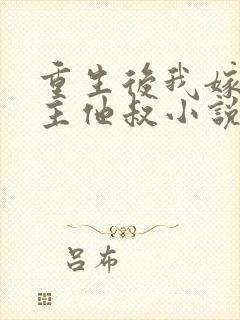 重生後我嫁
主他叔小說
呂布